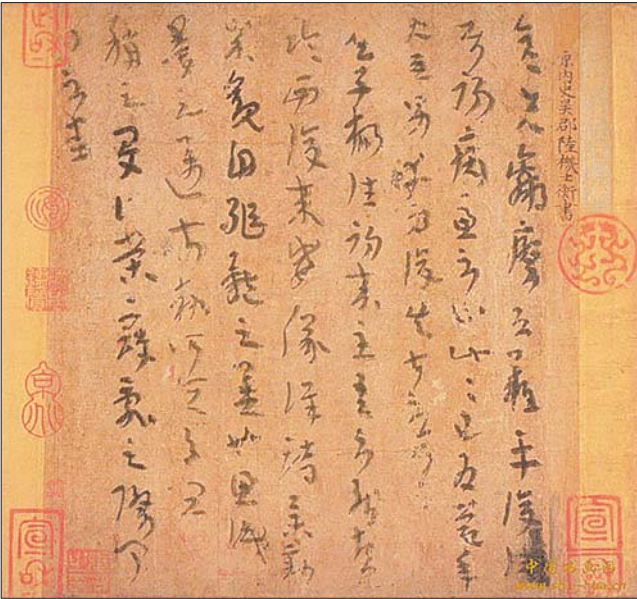 晉內史吳郡陸機士衡書
彥先羸瘵恐難平復往屬
初病慮不止此此已為慶承
使唯男幸為復失前憂耳
吳子楊往初來主吾不能盡
臨西復來威儀詳跱舉動
成觀自軀體之美也思識
量之邁前勢所恒有宜
稱之夏伯榮寇亂之際聞
問不悉
宣和
政和